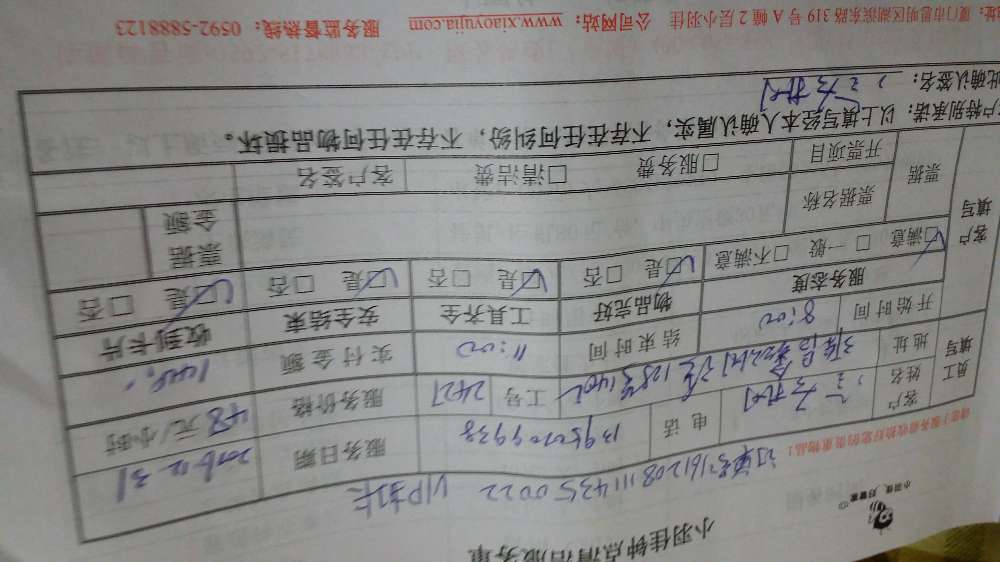 小羽佳钟点清洁服务单
小羽佳，好管家
订单号161208111435 0022 VIP
请您于服务前收拾好您的贵重物品！
员工填写
客户姓名
电话
13950209938
服务日期
2016.12.31
地址
工号
2427
服务价格
48元/小时
开始时间
8:00
结束时间
11:00
实付金额
144.
客户填写
服务态度
物品完好
工具齐全
安全结束
收到卡片
☑满意 □一般 □不满意
☑是 □否
☑是 □否
☑是 □否
☑是 □否
票据
票据名称
票据金额
开票项目
□服务费 □清洁费
客户签名
客户特别承诺：以上填写经本人确认属实，不存在任何纠纷，不存在任何物品损坏。
此确认签名：
址：厦门市思明区湖滨东路 319 号 A 幢 2 层小羽佳 公司网站：www.xiaoyujia.com 服务监督热线：0592-5888123